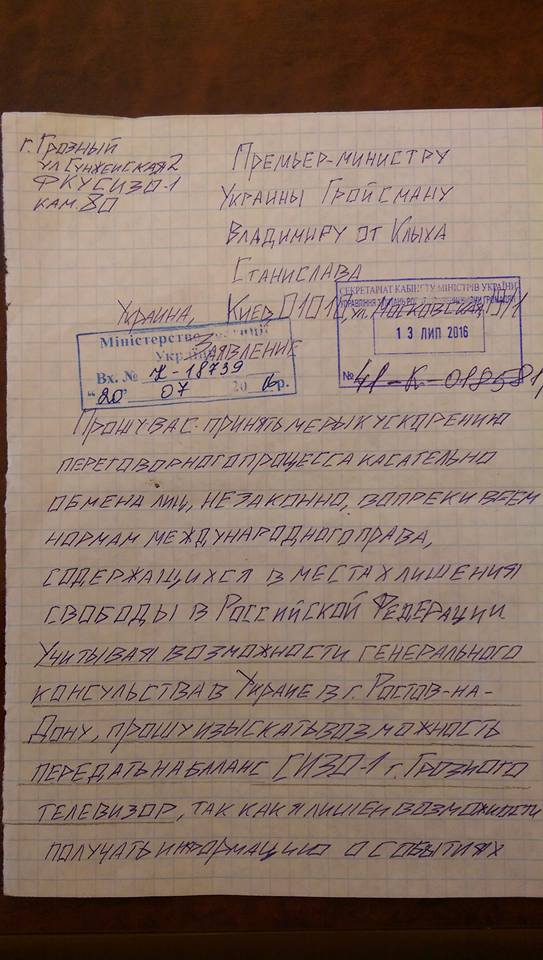 г. Грозный
ул Сунженская 2
ФКУ СИЗО-1
кам. 80
Премьер-министру
Украины Гройсману
Владимиру от Клыха
Станислава
Украина, Киев 01010, ул. Московская
СЕКРЕТАРІАТ КАБІНЕТУ МІНІСТРІВ УКРАЇНИ
13 ЛИП 2016
№ 41-К-018581
Міністерство юстиції
України
Вх. № К-18739
"20" 07 20 р.
Заявление
Прошу Вас принять меры к ускорению
переговорного процесса касательно
обмена лиц, незаконно, вопреки всем
нормам международного права,
содержащихся в местах лишения
свободы в Российской Федерации
Учитывая возможности генерального
консульства в Украие в г. Ростов-на-
Дону, прошу изыскать возможность
передать на баланс СИЗО-1 г. Грозного
телевизор, так как я лишен возможности
получать информацию о событиях